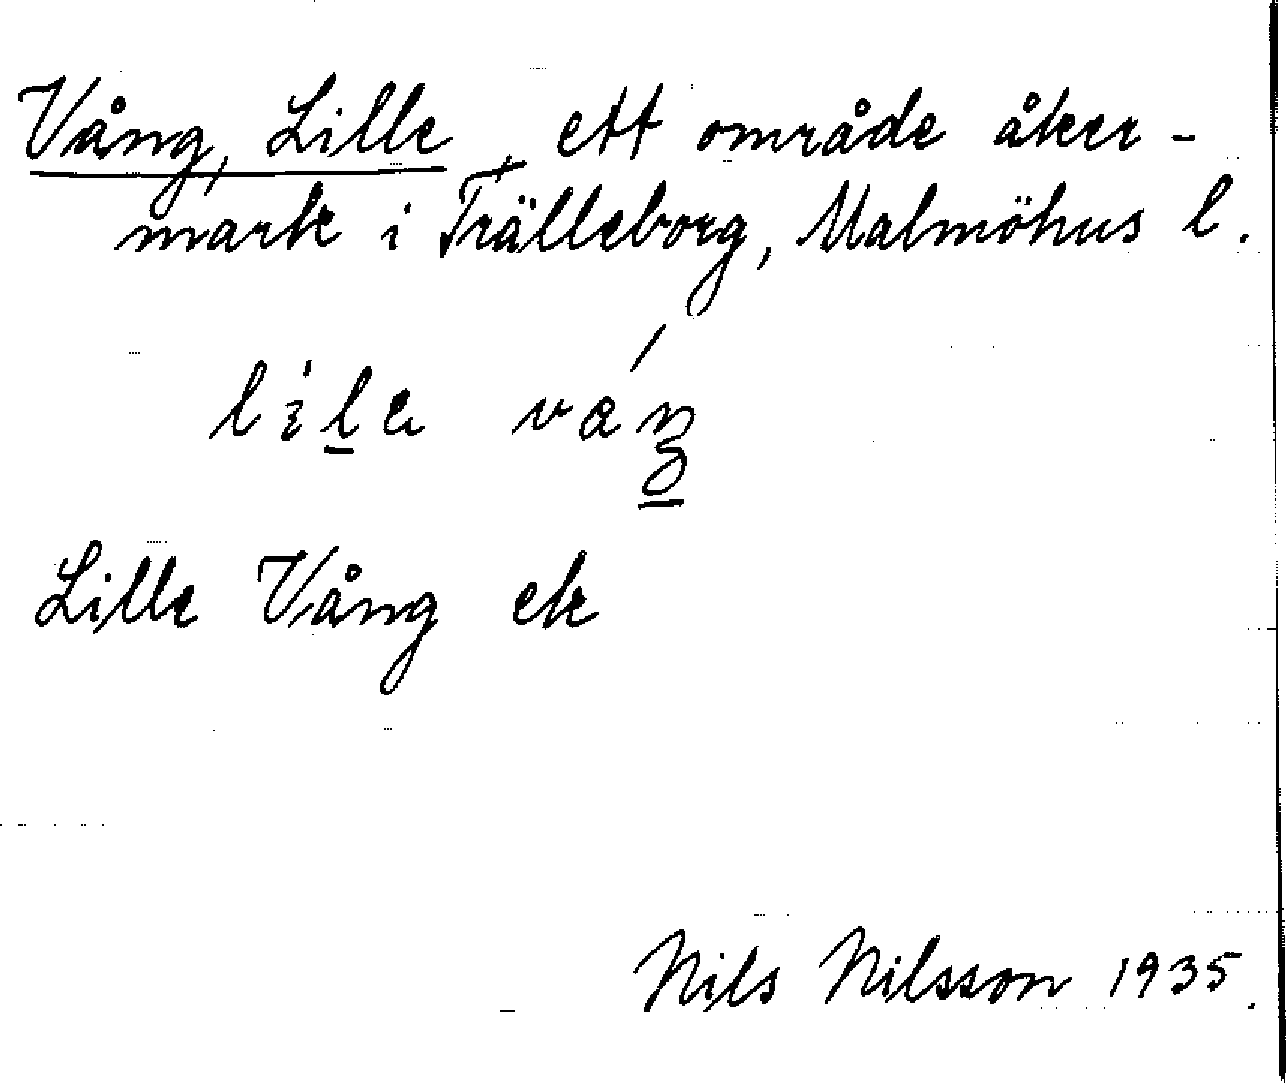 Vång, Lille, ett område åker-
mark i Trälleborg, Malmöhus l.
lila vaŋ
Lille Vång ek
Nils Nilsson 1935.